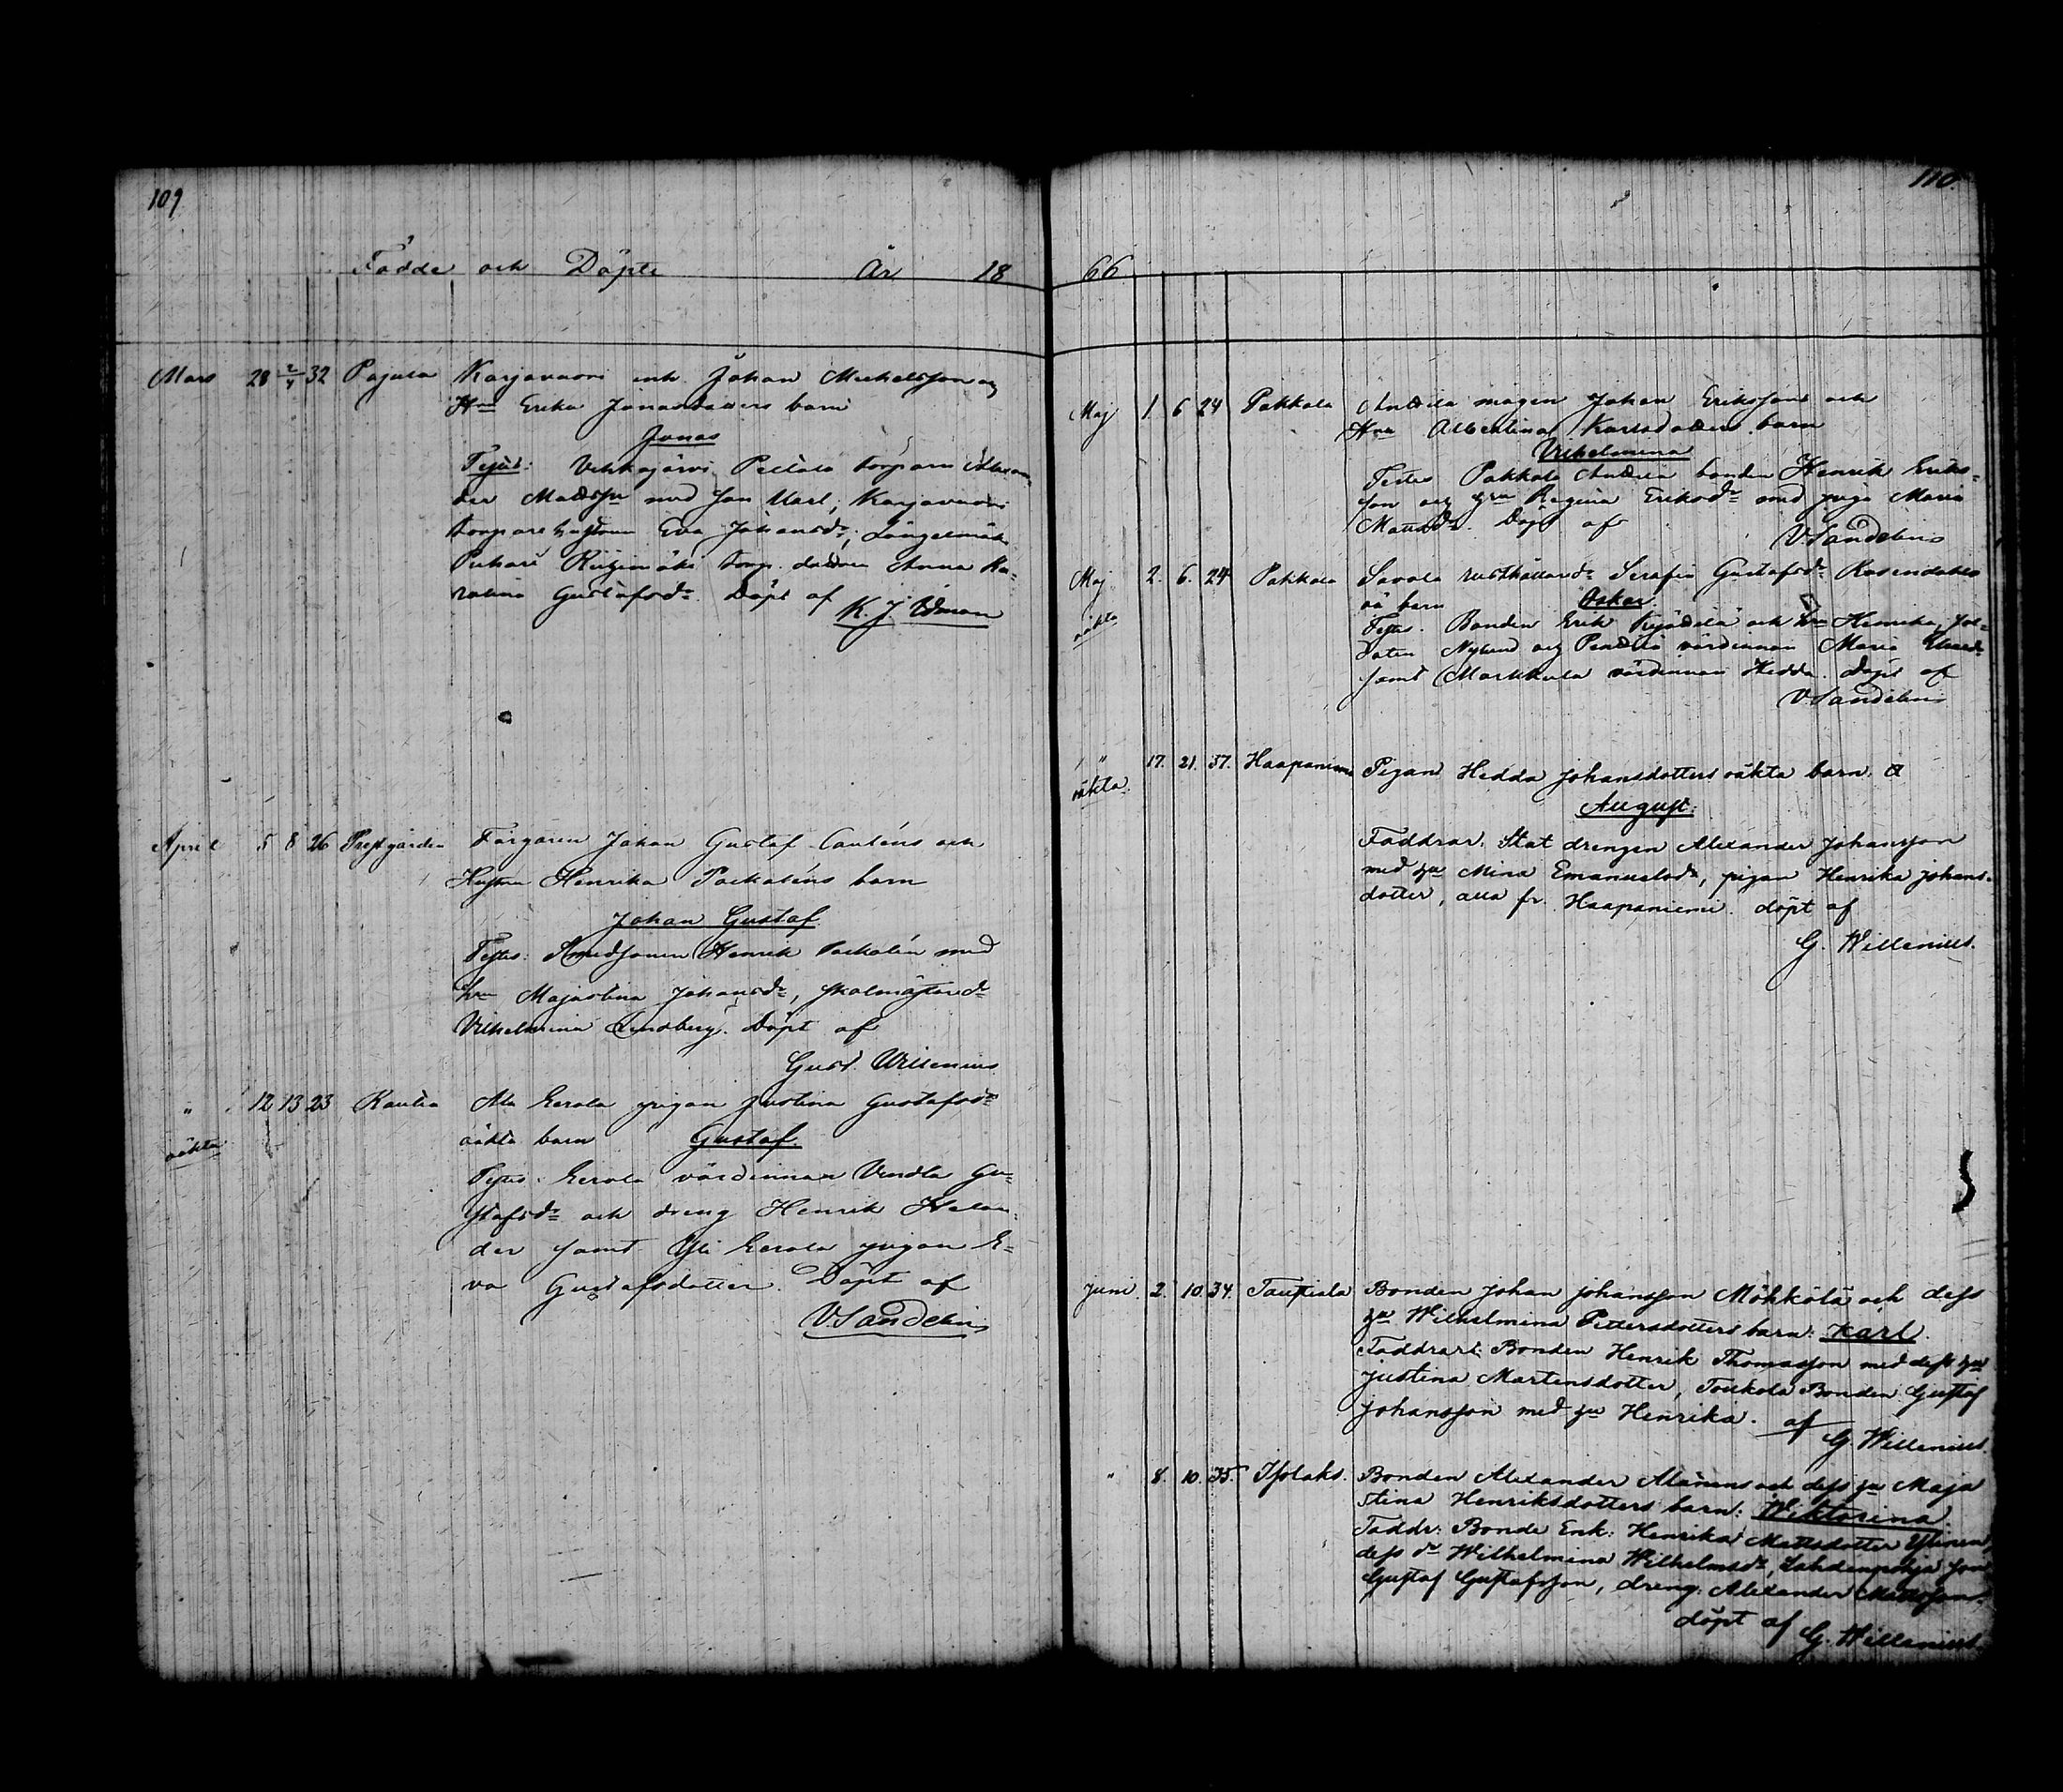 109
Födde och Döpte År 18
Mars 28 2/4 32 Pajula Karjavuori inh. Johan Michelsson og
Hru Erika Jonasdotters barn
Jonas
Testes: Vehkajärvi Pellola torparn Alexan
der Mattsson med son Karl, Karjavuori
torpare hustrun Eva Johansdr, Längelmäki
Puharé Riihimäki torp. dottren Anna Ka-
rolina Gustafsdr. Döpt af K. J. Edman
April 5 8 26 Prestgården Färgaren Johan Gustaf Cauténs och
Hustru Henrika Packaléns barn
Johan Gustaf
Testes: Smedsonen Henrik Packalén med
hru Majastina Johansdr, skolmästaredr
Vilhelmina Lindberg. Döpt af
Gust. Willenius
" 12 13 23 Kautia Ala Eerola pigan Justina Gustafsdr
oäkta oäkta barn Gustaf.
Testes. Eerola värdinnan Vendla Gu-
stafsdr och dreng Henrik Helan-
der samt Yli Eerola pigan E-
va Gustafsdotter. Döpt af
V. Sandelin
110.
66
Maj 1. 6 24 Pakkala Anttila mågen Johan Erikssons och
Hru Albertina Karlsdotters barn
Vilhelmina
Testes Pakkala Anttila bonden Henrik Eriks-
son og hru Regina Eriksdr med piga Maria
Mattsdr. Döpt af
V. Sandelin
Maj 2. 6. 24 Pakkala Savola rusthållaredr Serafia Gustafsdr Rosendahls
oäkta oä barn Oskar.
Testes. Bonden Erik och hru Henrika, sol-
daten Nylund og Penttilä värdinnan Maria
samt Markkula värdinnan Hedda. Döpt af
V. Sandelin
" 17. 21. 37. Haapaniemi Pigan Hedda Johansdotters oäkta barn.
oäkta. August.
Faddrar: Stat drengen Alexander Johansson
med hu Mina Emanuelsdr, pigan Henrika Johans-
dotter, alla fr. Haapaniemi. döpt af
G. Willenius.
Juni. 2. 10. 34. Tautiala Bonden Johan Johansson Mökkölä och dess
hu Wilhelmina Pettersdotters barn: Karl.
Faddrar: Bonden Henrik Thomasson med dess hu
Justina Martensdotter, Toukola Bonden Gustaf
Johansson med hu Henrika. af
G. Willenius.
" 8. 10. 35. Isolaks. Bonden Alexander Alänens och dess hu Maja
Stina Henriksdotters barn: Wiktorina.
Faddr: Bonde Enk: Henrika Mattsdotter Ylinen,
dess dr Wilhelmina Wilhelmsdr, Lahdenpohja son
Gustaf Gustafsson, dreng: Alexander Mattsson.
döpt af G. Willenius